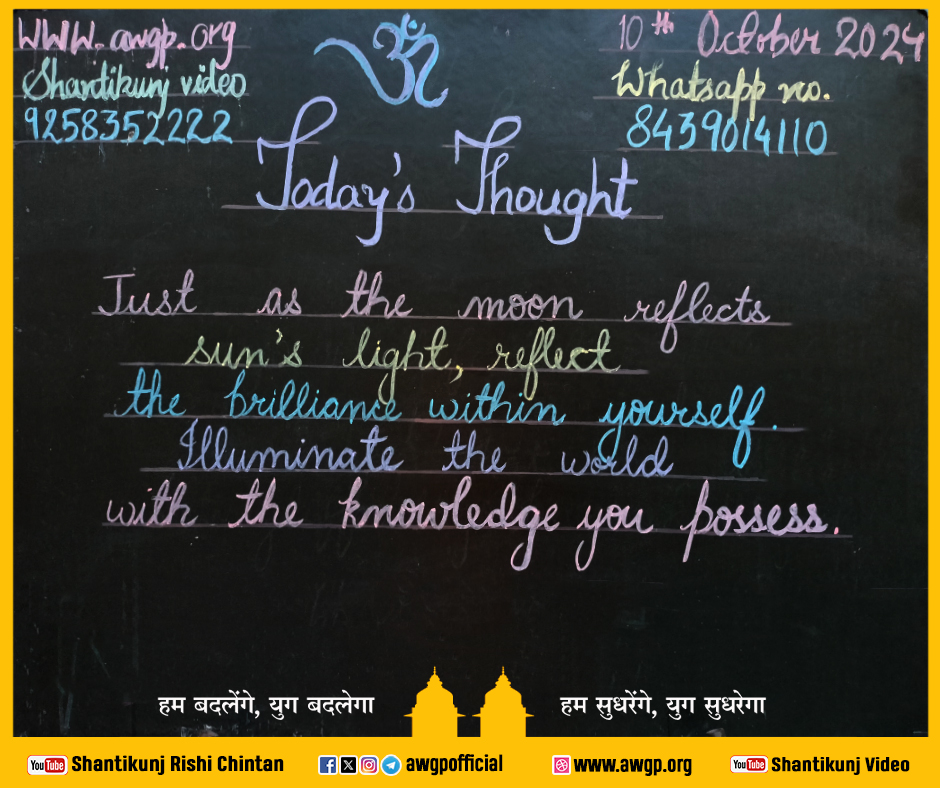 www.awgp.org
10th October 2024
Shantikunj video
Whatsapp no.
9258352222
8439014110
ॐ
Today's Thought
Just as the moon reflects
sun's light, reflect
the brilliance within yourself.
Illuminate the world
with the knowledge you possess.
हम बदलेंगे, युग बदलेगा
हम सुधरेंगे, युग सुधरेगा
YouTube Shantikunj Rishi Chintan
awgpofficial
www.awgp.org
YouTube Shantikunj Video